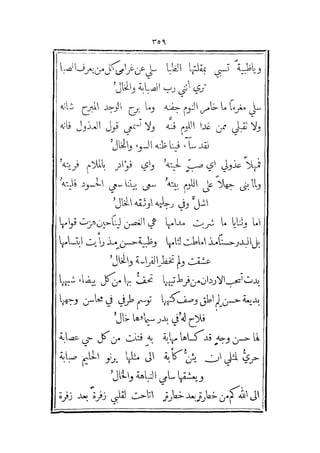 ٣٥٩
وياظبية تسبي بمقلتها الظبا سلي عن غرامي كل من يعرف الصبا
تري أنني رب الصبابة والخالُ
سلي مغرمًا ما خامر النوم جفنه وما برح الوجد المبرح شانه
ولا تقبلي ممن غدا اللوم فنّه ولا تسمعي قول العذول فانه
نقد سآء فينا ظنه السوء والخالُ
فمهلاً عذولي اي صبٍّ لحيتهُ واي فؤادٍ بالملام فريتهُ
ولما بنى جهلاً على اللوم بيتهُ سعى بيننا سعي الحسود فليتهُ
اشلُّ وفي رجليهِ اوثقه الخالُ
اما وثنايا ما شربت مدامها هي الغصن لينًا حين هزت قوامها
بل البدر حسنًا مذ اماطت لثامها وظبية حسنٍ مذ رأيت ابتسامها
عشقت ولم تخطر الفراسة والخالُ
بدت تسحب الاردان من فرط تيهها تحفُّ بها من كل بيضاء شبهها
بديعة حسنٍ لم اطق وصف كنهها توسم طرفي في محاسن وجهها
فلاح له في بدر سيماءها خالُ
لها حسن وجهٍ قد كساها مهابة به فتنت من كل حي عصابة
حريٌّ لمثلي ان يئنَّ كآبة الى مثلها يرنو الحليم صبابة
ويعشقها سامي النباهة والخالُ
الى الله كم من خطرةٍ بعد خطرةٍ اتاحت لقلبي زفرةً بعد زفرة